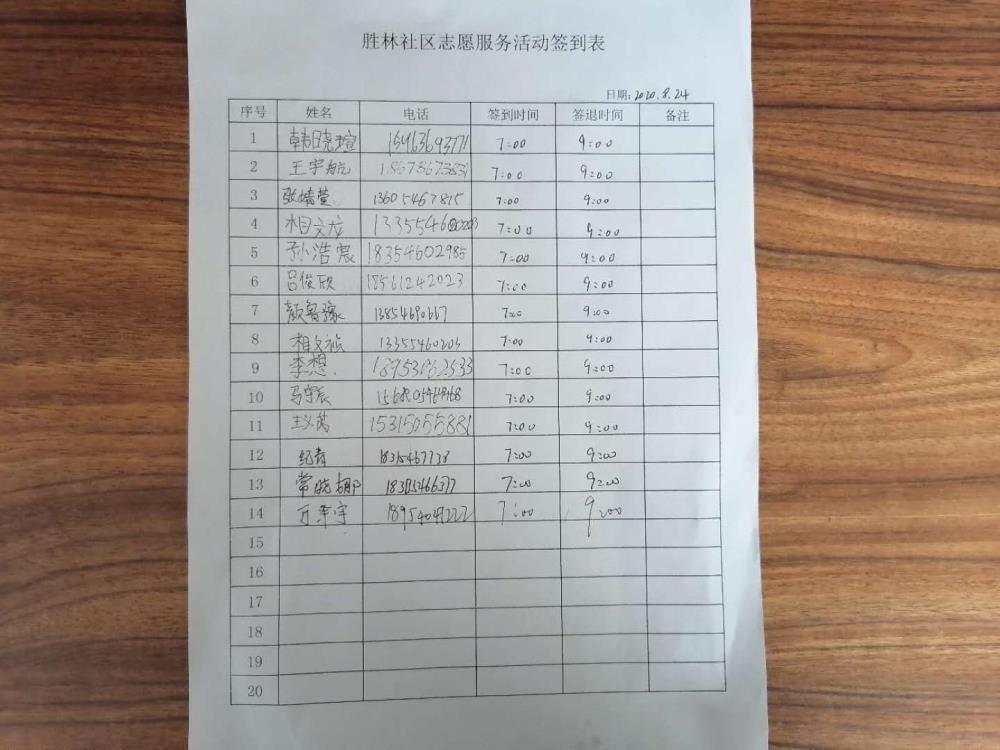 胜林社区志愿服务活动签到表
日期:2020.8.24
序号 姓名 电话 签到时间 签退时间 备注
1 韩晓瑄 15963693771 7:00 9:00
2 王宇航 7:00 9:00
3 张婧萱 13605467815 7:00 9:00
4 相文龙 7:00 9:00
5 孙浩宸 18354602985 7:00 9:00
6 吕俊欣 18561242023 7:00 9:00
7 颜鲁豫 13854690667 7:00 9:00
8 13355460203 7:00 9:00
9 李想 7:00 9:00
10 马宇辰 7:00 9:00
11 15315055881 7:00 9:00
12 纪青 7:00 9:00
13 常晓娜 7:00 9:00
14 7:00 9:00
15
16
17
18
19
20